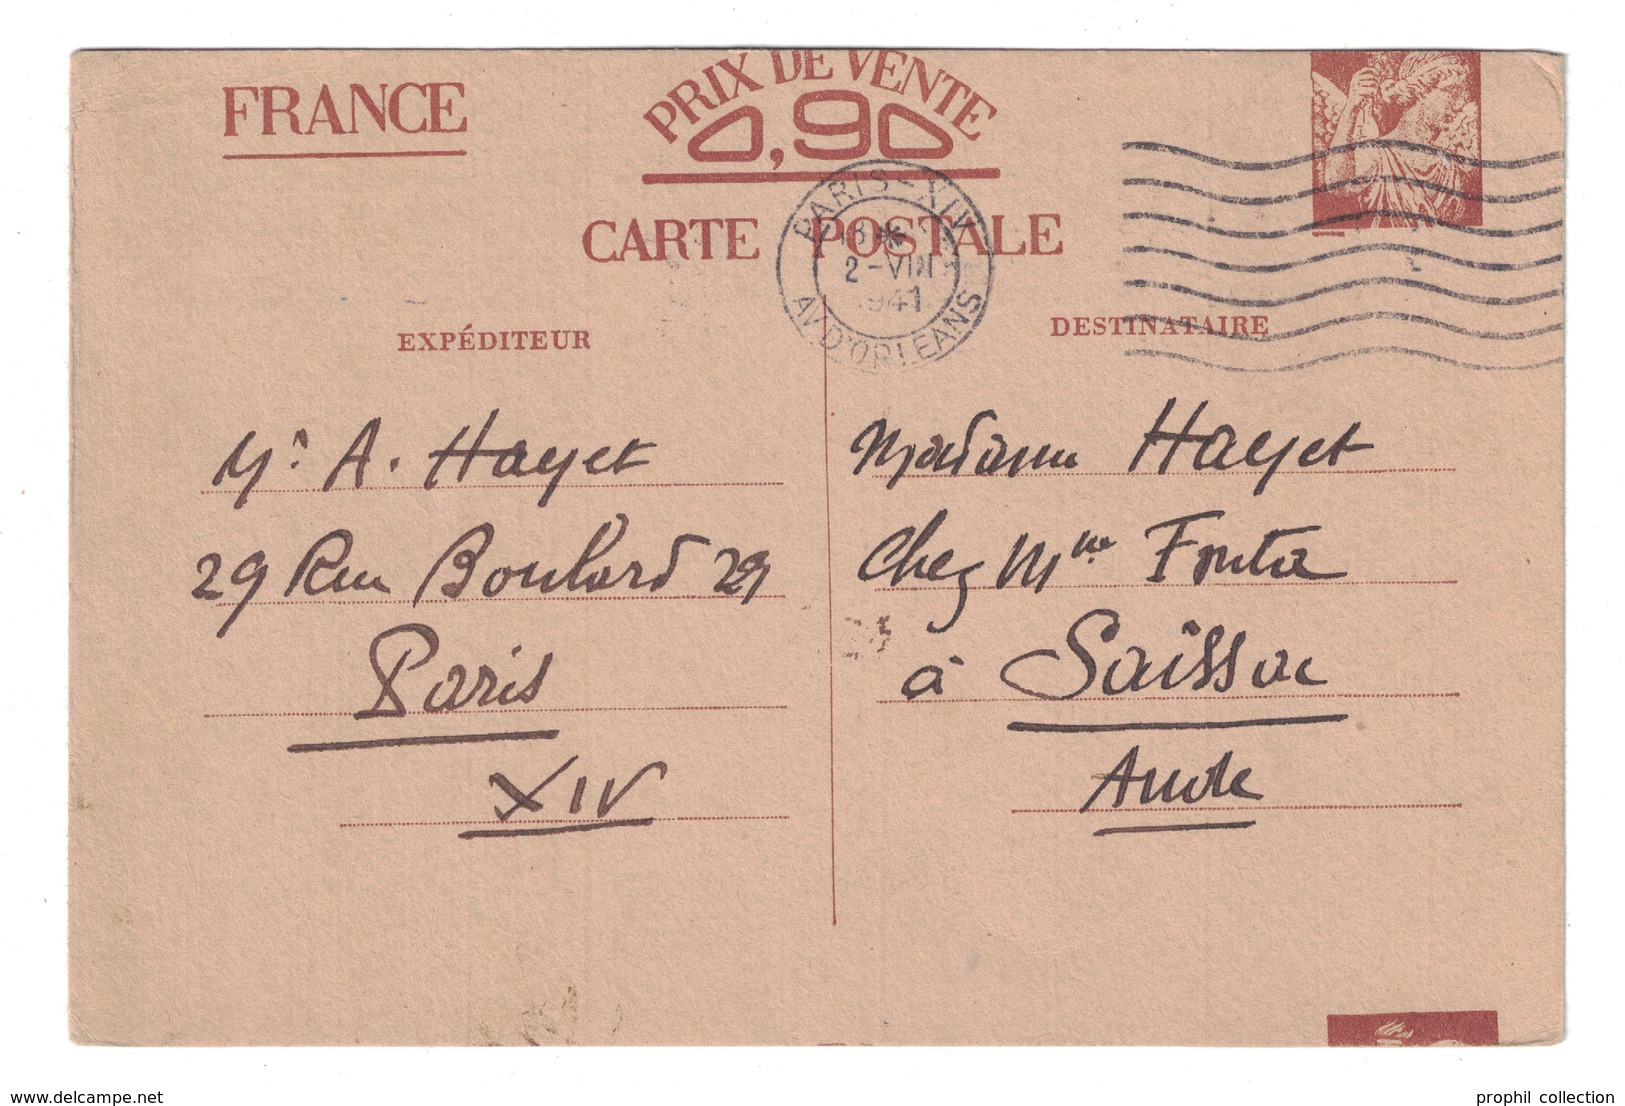 PRIX DE VENTE
0,90
FRANCE
CARTE POSTALE
PARIS-XIV
18
2-VIII
1941
AV. D'ORLEANS
EXPÉDITEUR
Mr A. Hayet
29 Rue Boulard 29
Paris
XIV
DESTINATAIRE
Madame Hayet
Chez Mme
à Saissac
Aude
www.delcampe.net
prophil collection